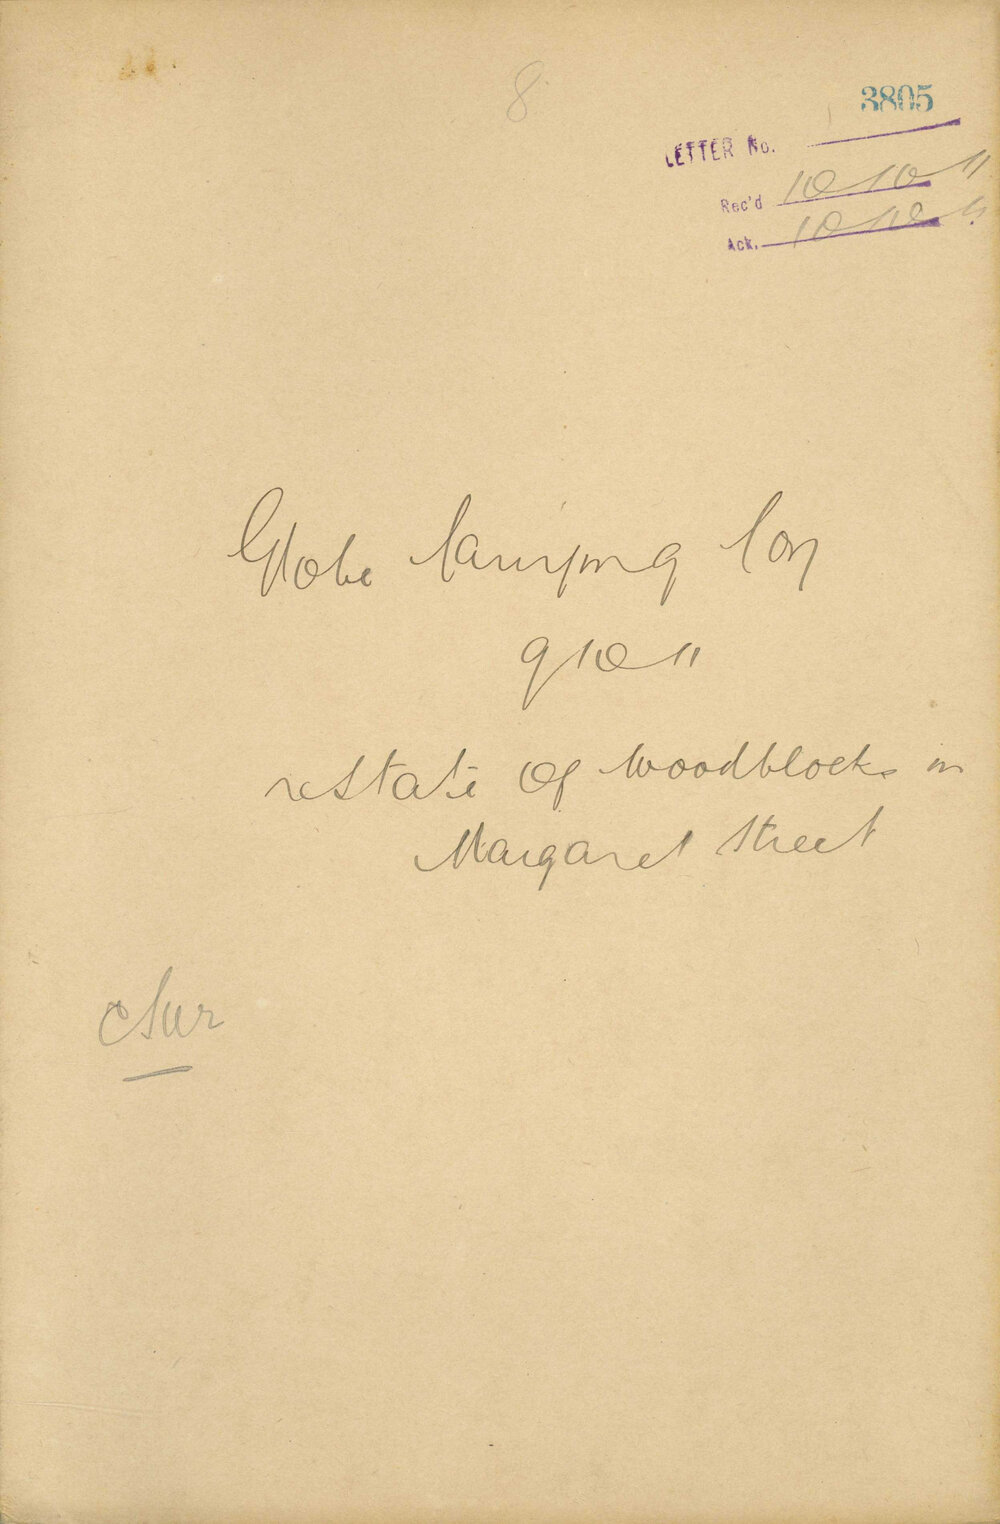 8
3805
LETTER No.
Rec'd 10/10/11
Ack. 10/10/11
Globe Carrying Coy
9/10/11
re State of Woodblocks in
Margaret Street